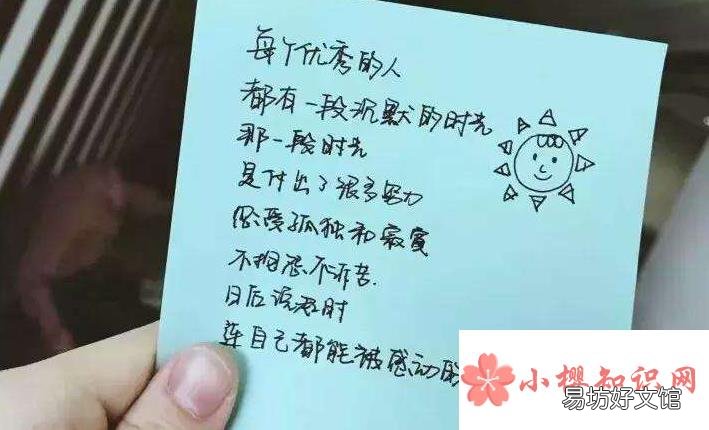 每个优秀的人
都有一段沉默的时光
那一段时光
是付出了很多努力
忍受孤独和寂寞
不抱怨不诉苦.
日后说起时
连自己都能被感动的
小樱知识网
易坊好文馆